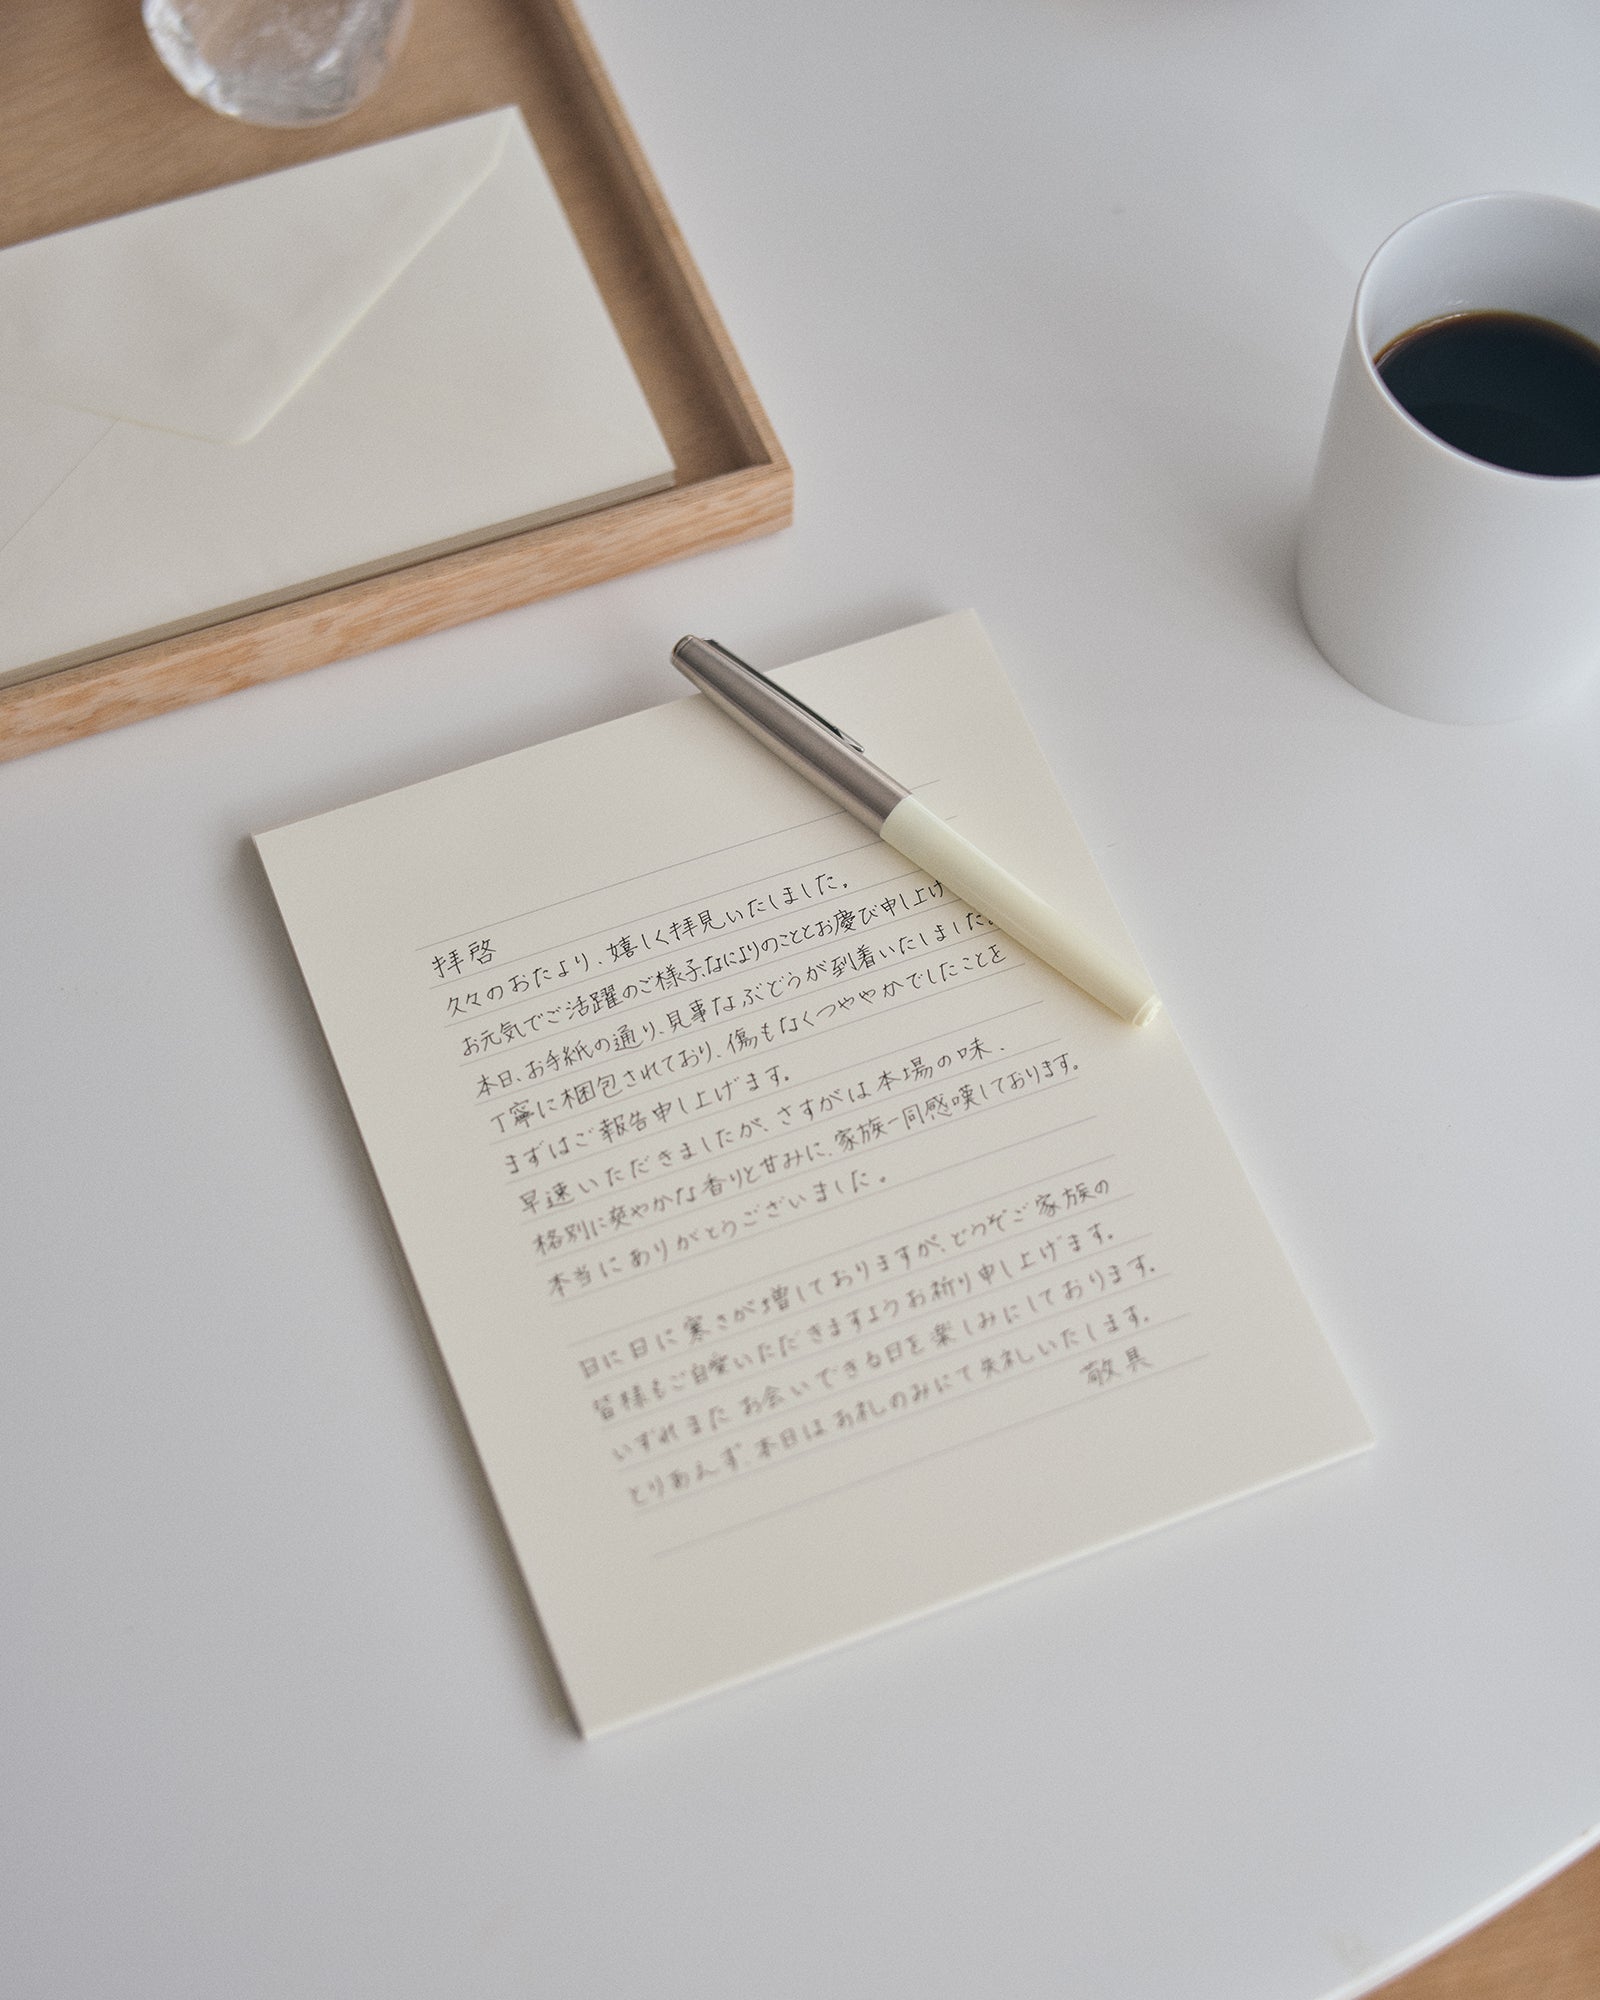 拝啓
久々のおたより、嬉しく拝見いたしました。
お元気でご活躍のご様子、なによりのこととお慶び申し上げ
本日、お手紙の通り、見事なぶどうが到着いたしました。
丁寧に梱包されており、傷もなくつややかでしたことを
まずはご報告申し上げます。
早速いただきましたが、さすがは本場の味、
格別に爽やかな香りと甘みに、家族一同感嘆しております。
本当にありがとうございました。
日に日に寒さが増しておりますが、どうぞご家族の
皆様もご自愛いただきますようお祈り申し上げます。
いずれまたお会いできる日を楽しみにしております。
とりあえず、本日はお礼のみにて失礼いたします。
敬具